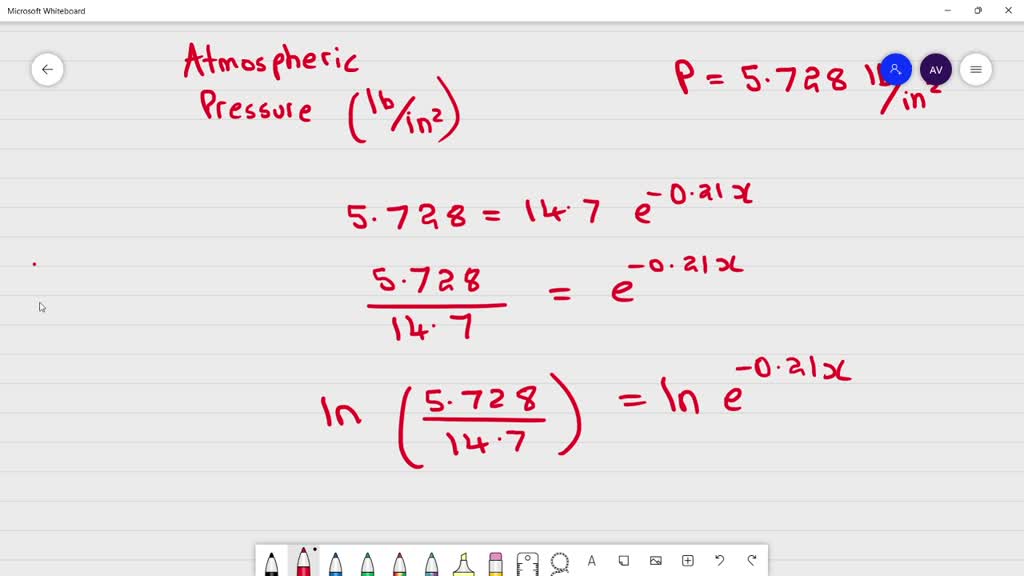 Microsoft Whiteboard
Atmospheric
Pressure (lb/in²)
P = 5.728 lb/in²
AV
5.728 = 14.7 e^-0.21x
5.728/14.7 = e^-0.21x
ln (5.728/14.7) = ln e^-0.21x
A